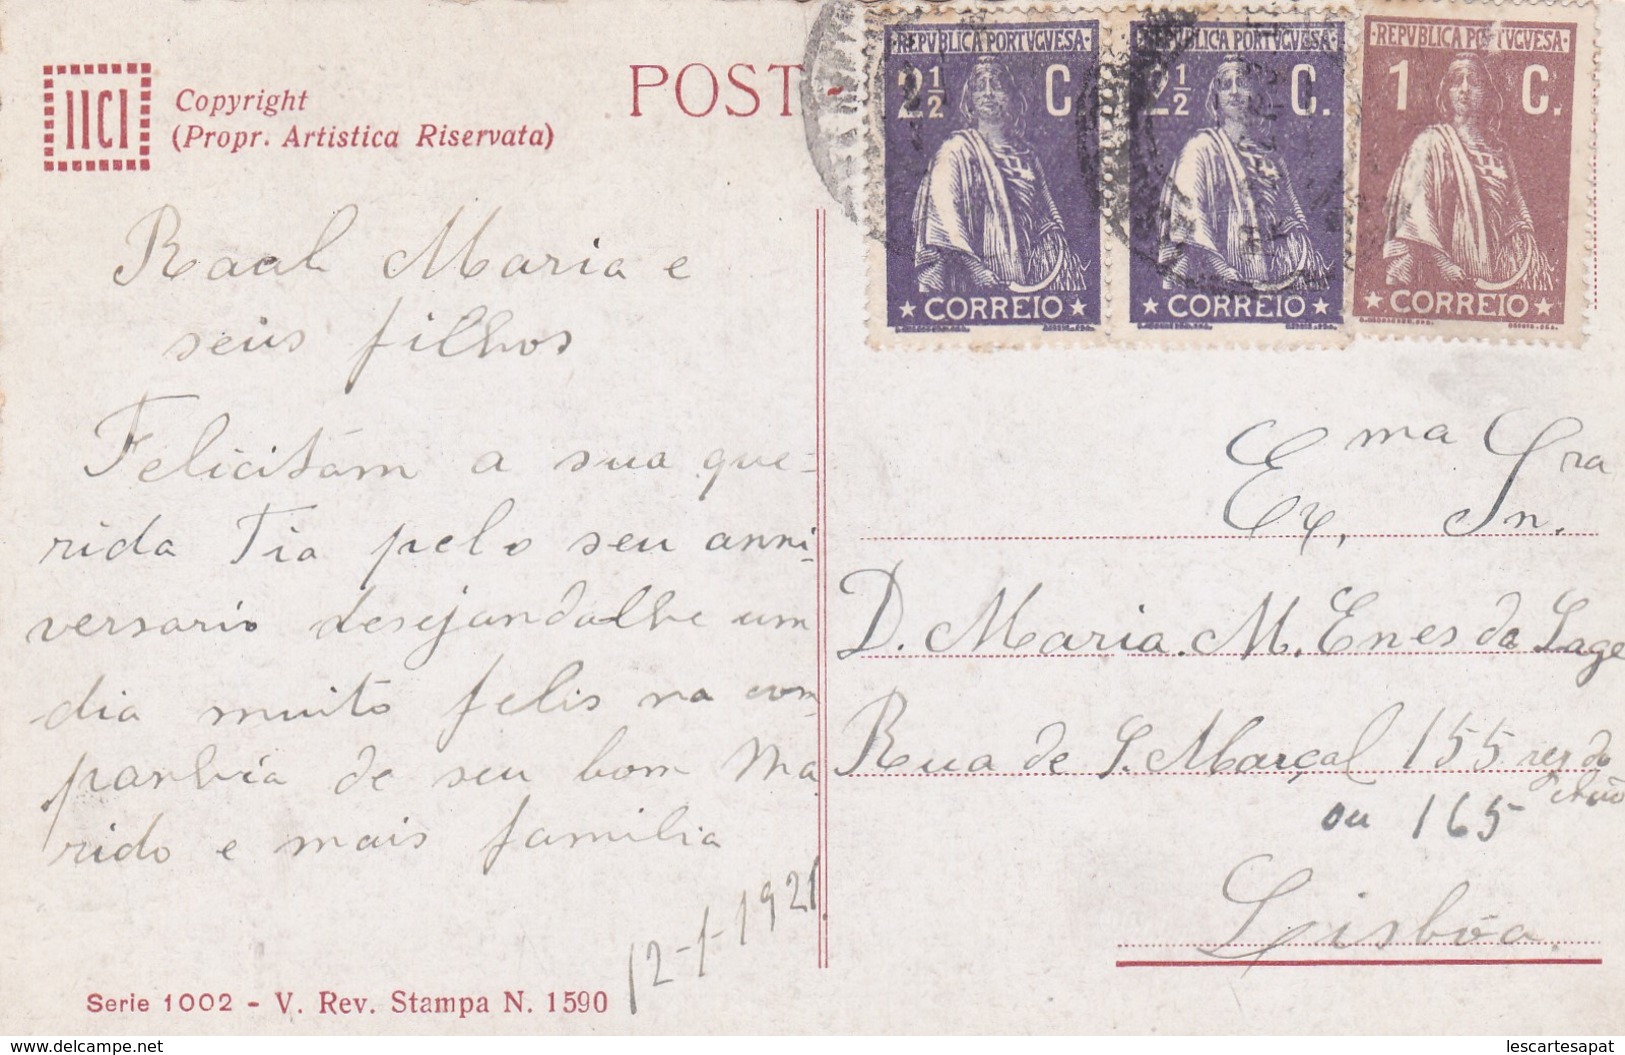 IICI
Copyright
(Propr. Artistica Riservata)
POST
REPVBLICA PORTVGVESA
2½ C.
CORREIO
REPVBLICA PORTVGVESA
2½ C.
CORREIO
REPVBLICA PORTVGVESA
1 C.
CORREIO
Raal Maria e
seus filhos
Felicitám a sua que-
rida Tia pelo seu anni-
versario desejandolhe um
dia muito felis na com-
panhia de seu bom Ma
rido e mais familia
12-1-1921
Serie 1002 - V. Rev. Stampa N. 1590
Ema Sra
Ex, Sn.
D. Maria. M. Enes da Lage
Rua de S. Marçal 155 res do
ou 165
Lisbôa.
delcampe.net
lescartesapat